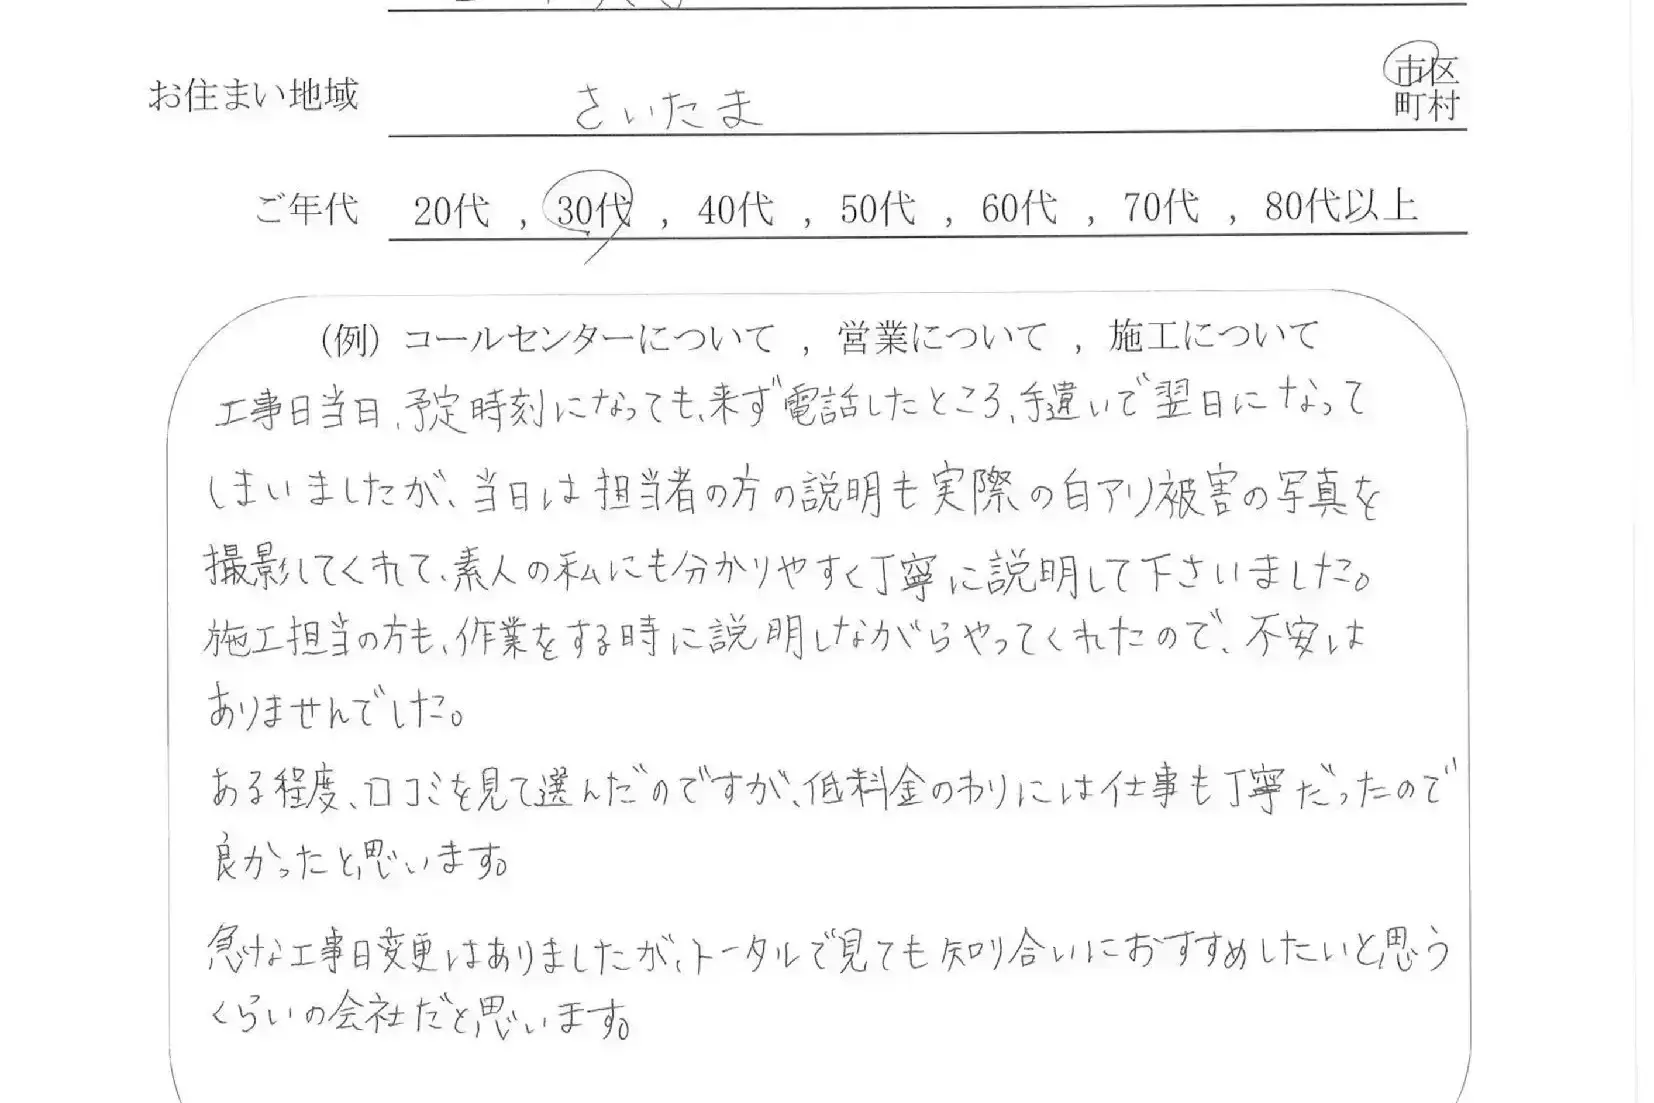 お住まい地域 さいたま 市区
町村
ご年代 20代 , 30代 , 40代 , 50代 , 60代 , 70代 , 80代以上
(例) コールセンターについて , 営業について , 施工について
工事日当日、予定時刻になっても、来ず電話したところ、手違いで翌日になって
しまいましたが、当日は担当者の方の説明も実際の白アリ被害の写真を
撮影してくれて、素人の私にも分かりやすく丁寧に説明して下さいました。
施工担当の方も、作業をする時に説明しながらやってくれたので、不安は
ありませんでした。
ある程度、口コミを見て選んだのですが、低料金のわりには仕事も丁寧だったので
良かったと思います。
急な工事日変更はありましたが、トータルで見ても知り合いにおすすめしたいと思う
くらいの会社だと思います。